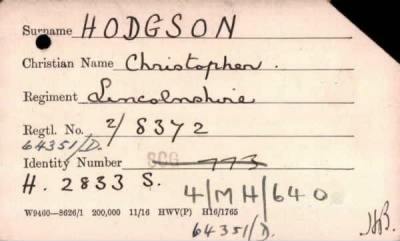 Surname HODGSON
Christian Name Christopher.
Regiment Lincolnshire
Regtl. No. 2/8372
64351/D.
Identity Number 773
H. 2833 S. 4/MH/640
W9460—8626/1 200,000 11/16 HWV(P) H16/1765
64351/D.